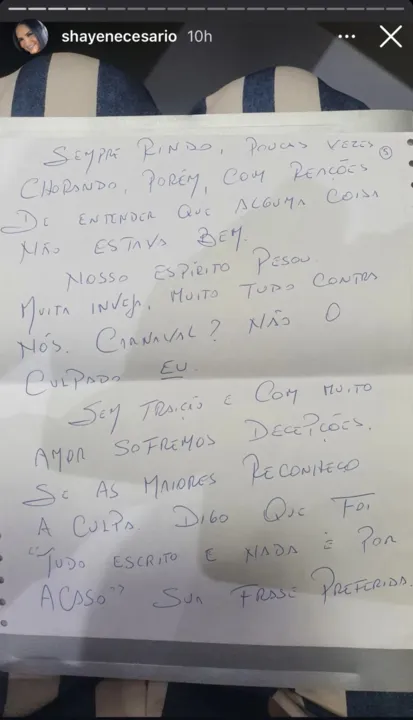 shayenecesario 10h
SEMPRE RINDO, POUCAS VEZES 5
CHORANDO, PORÉM, COM REAÇÕES
DE ENTENDER QUE ALGUMA COISA
NÃO ESTAVA BEM.
NOSSO ESPÍRITO PESOU.
MUITA INVEJA, MUITO TUDO CONTRA
NÓS. CARNAVAL? NÃO O
CULPADO EU.
SEM TRAIÇÃO E COM MUITO
AMOR SOFREMOS DECEPÇÕES.
SE AS MAIORES RECONHEÇO
A CULPA. DIGO QUE FOI
"TUDO ESCRITO E NADA É POR
ACASO" SUA FRASE PREFERIDA.